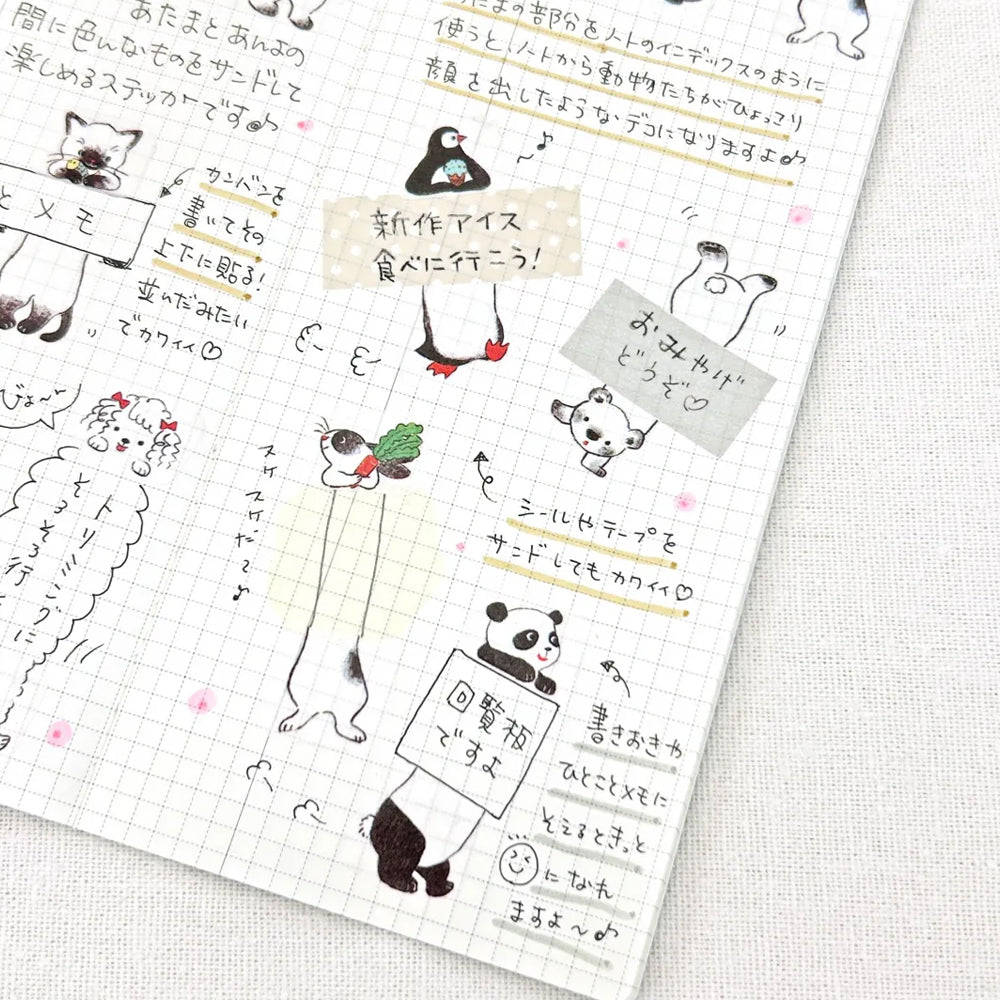 あたまとあんよの
間に色んなものをサンドして
楽しめるステッカーです♪
たまの部分をノートのインデックスのように
使うと、ノートから動物たちがひょっこり
顔を出したようなデコになりますよ♪
とメモ
カンバンを
書いてその
上下に貼る!
並んだみたい
でカワイイ♡
新作アイス
食べに行こう!
おみやげ
どうぞ♡
トリミングに
そろそろ行
スケスケだ〜♪
シールやテープを
サンドしてもカワイイ♡
回覧板
ですよ
書きおきや
ひとことメモに
そえるときっと
になれ
ますよ〜♪